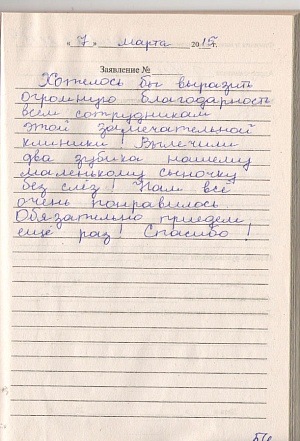 « 7 » марта 2015г.
Заявление №
Хотелось бы выразить
огромную благодарность
всем сотрудникам
этой замечательной
клиники! Вылечили
два зубика нашему
маленькому сыночку
без слёз! Нам всё
очень понравилось.
Обязательно приедем
ещё раз! Спасибо!